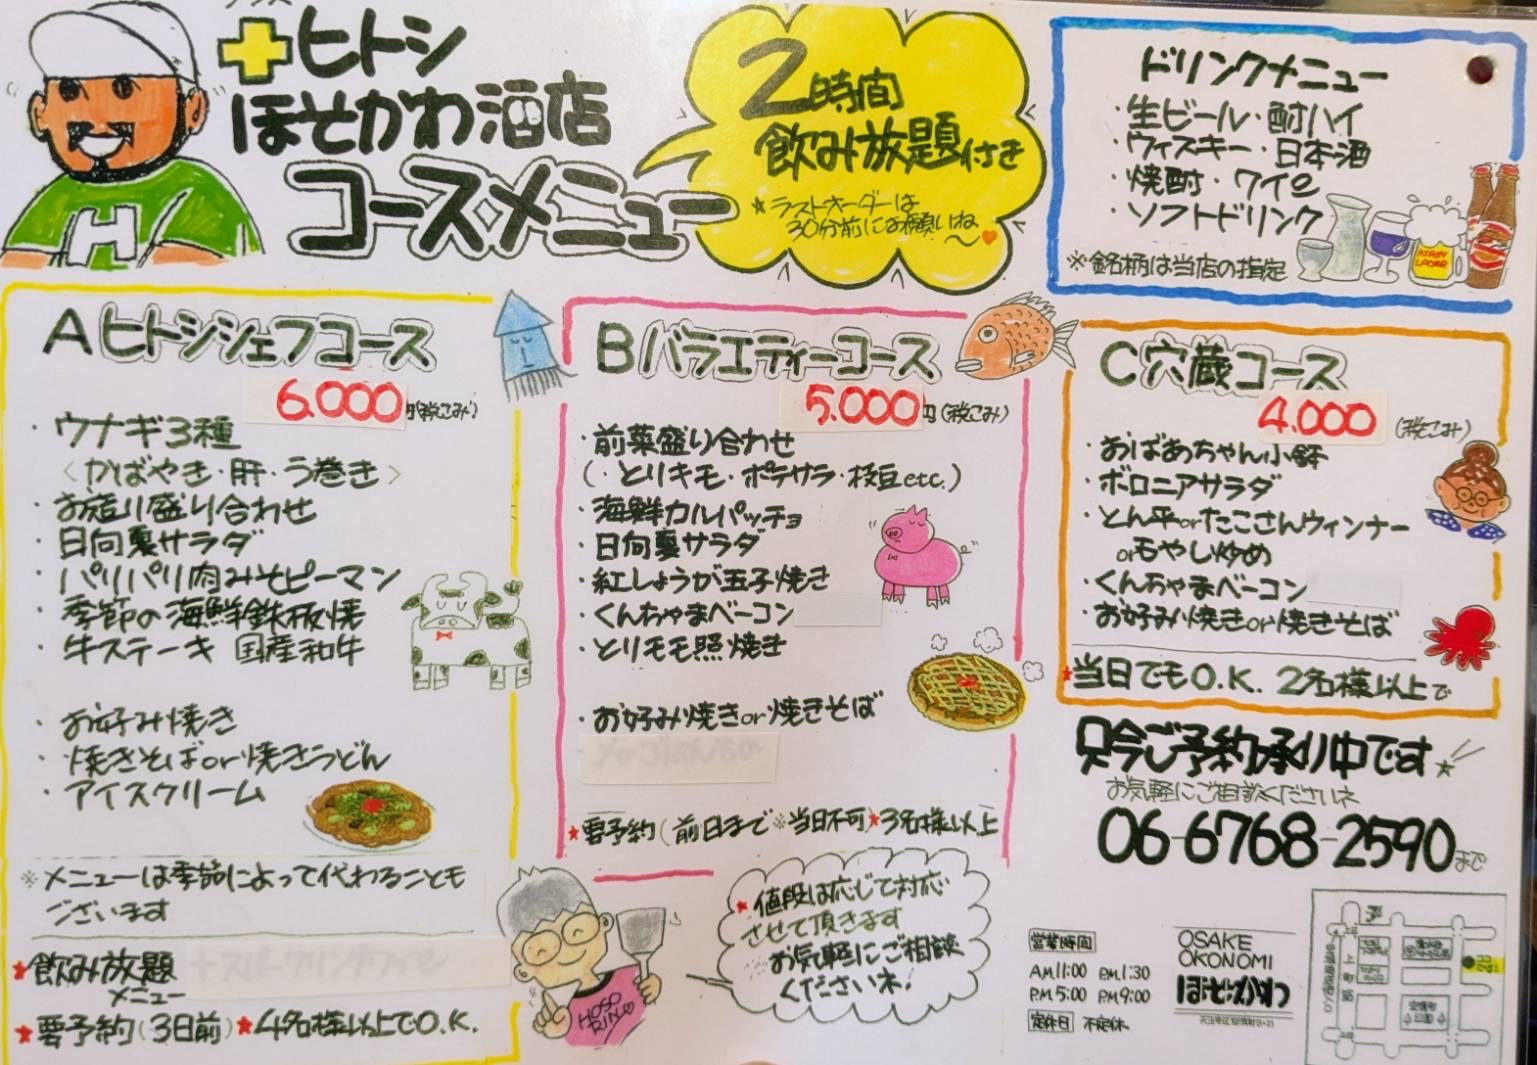 ヒトシ
ほそかわ酒店
コースメニュー
2時間
飲み放題付き
★ラストオーダーは
30分前にお願いね〜
ドリンクメニュー
・生ビール・酎ハイ
・ウィスキー・日本酒
・焼酎・ワイン
・ソフトドリンク
※銘柄は当店の指定
KIRIN
LAGER
H
Aヒトシシェフコース
6.000円(税こみ)
・ウナギ3種
〈かばやき・肝・う巻き〉
・お造り盛り合わせ
・日向夏サラダ
・パリパリ肉みそピーマン
・季節の海鮮鉄板焼
・牛ステーキ 国産和牛
・お好み焼き
・焼きそばor焼きうどん
・アイスクリーム
※メニューは季節によって代わることも
ございます
★飲み放題
メニュー
+スパークリングワイン
★要予約(3日前)★4名様以上でO.K.
Bバラエティーコース
5.000円(税こみ)
・前菜盛り合わせ
(・とりキモ・ポテサラ・枝豆etc.)
・海鮮カルパッチョ
・日向夏サラダ
・紅しょうが玉子焼き
・くんちゃまベーコン
・とりモモ照焼き
・お好み焼きor焼きそば
★要予約(前日まで※当日不可★3名様以上
C穴蔵コース
4.000(税こみ)
・おばあちゃん小鉢
・ボロニアサラダ
・とん平orたこさんウィンナー
orもやし炒め
・くんちゃまベーコン
・お好み焼きor焼きそば
★当日でもO.K. 2名様以上で
只今ご予約承り中です★
お気軽にご相談くださいネ
06-6768-2590まで
★値段は応じて対応
させて頂きます
お気軽にご相談
くださいネ!
HOSO
RINO
営業時間
AM11:00 PM1:30
PM5:00 PM9:00
定休日 不定休
OSAKE
OKONOMI
ほそかわ